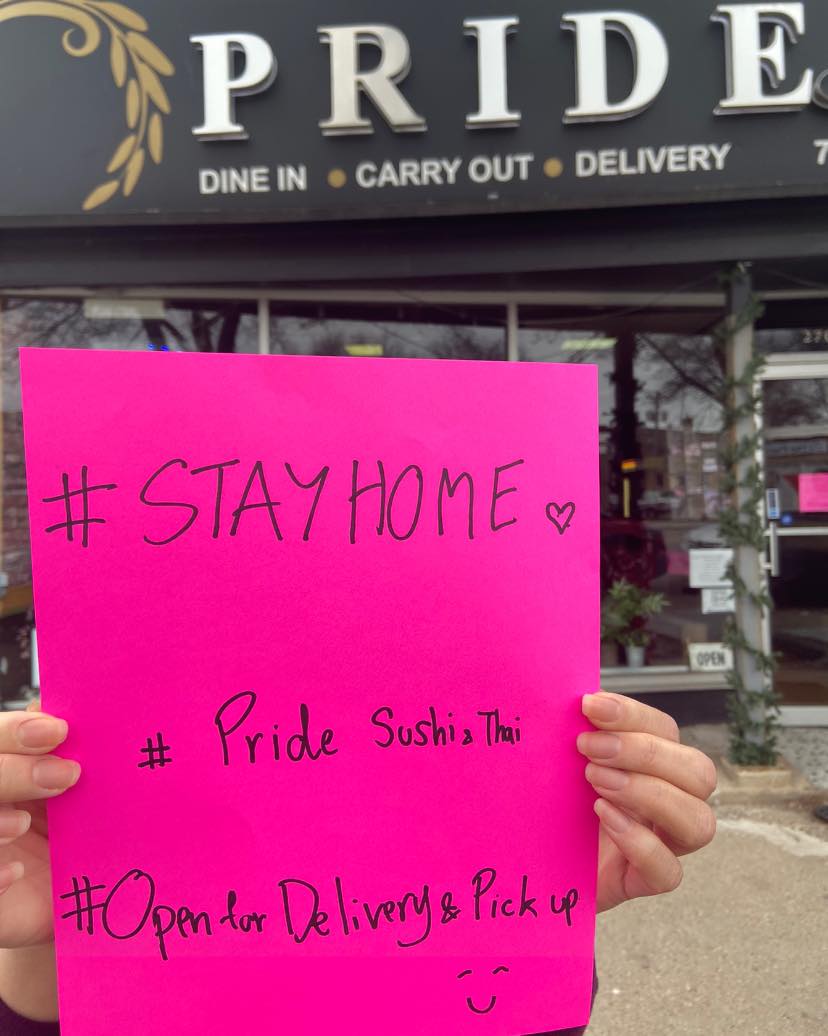 PRIDE
DINE IN • CARRY OUT • DELIVERY
#STAY HOME
# Pride Sushi & Thai
#Open for Delivery & Pick up
OPEN